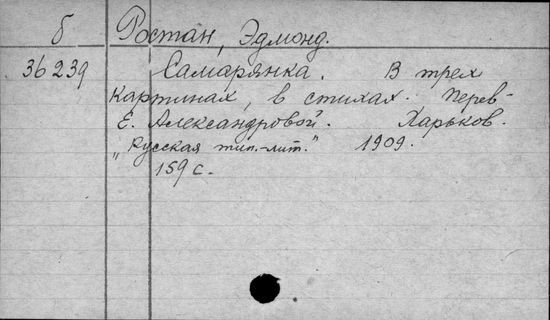 б Ростан, Эдмонд.
36239 Самарянка. В трех
картинах, в стихах. Перев-
Е. Александровой. Харьков.
„Русская тип.-лит." 1909.
159 с.